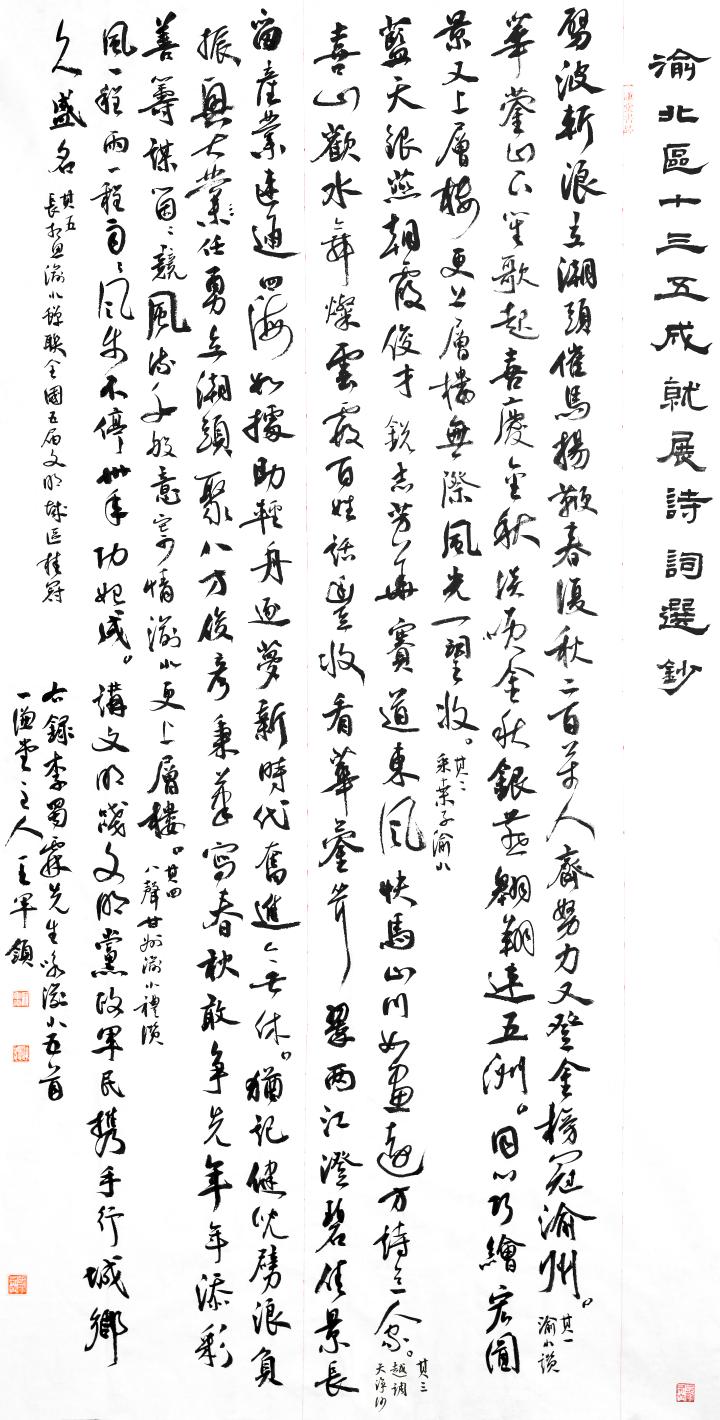 渝北區十三五成就展詩詞選鈔
劈波斬浪立潮頭催馬揚鞭春復秋二百萬人齊努力又登金榜冠渝州。其一渝北讚
華鎣山下笙歌起喜慶金秋談唄金秋銀燕翱翔達五洲。同心巧繪宏圖
景又上層樓更上層樓無際風光一望收。其二采桑子渝北
藍天銀燕朝霞俊才銳志芳華賽道東風快馬山川如畫遠方詩意人家。其三越調天淨沙
喜山歡水舞燦雲霞百姓話豐收看華鎣聳翠兩江澄碧佳景長
留產業連通四海如擄助輕舟逐夢新時代奮進無休。猶記健兒劈浪負
振興大業任勇立潮頭聚八方俊彥秉筆寫春秋敢爭先年年添彩
善籌謀眾競風流千般意寄情渝北更上層樓。其四八聲甘州渝北禮讚
風一程雨一程雨風步不停卅年功始成。講文明踐文明黨政軍民携手行城鄉
久盛名其五長相思渝北蟬聯全國五届文明城區桂冠
右錄李蜀霖先生咏渝北五首
一謙堂主人王軍領